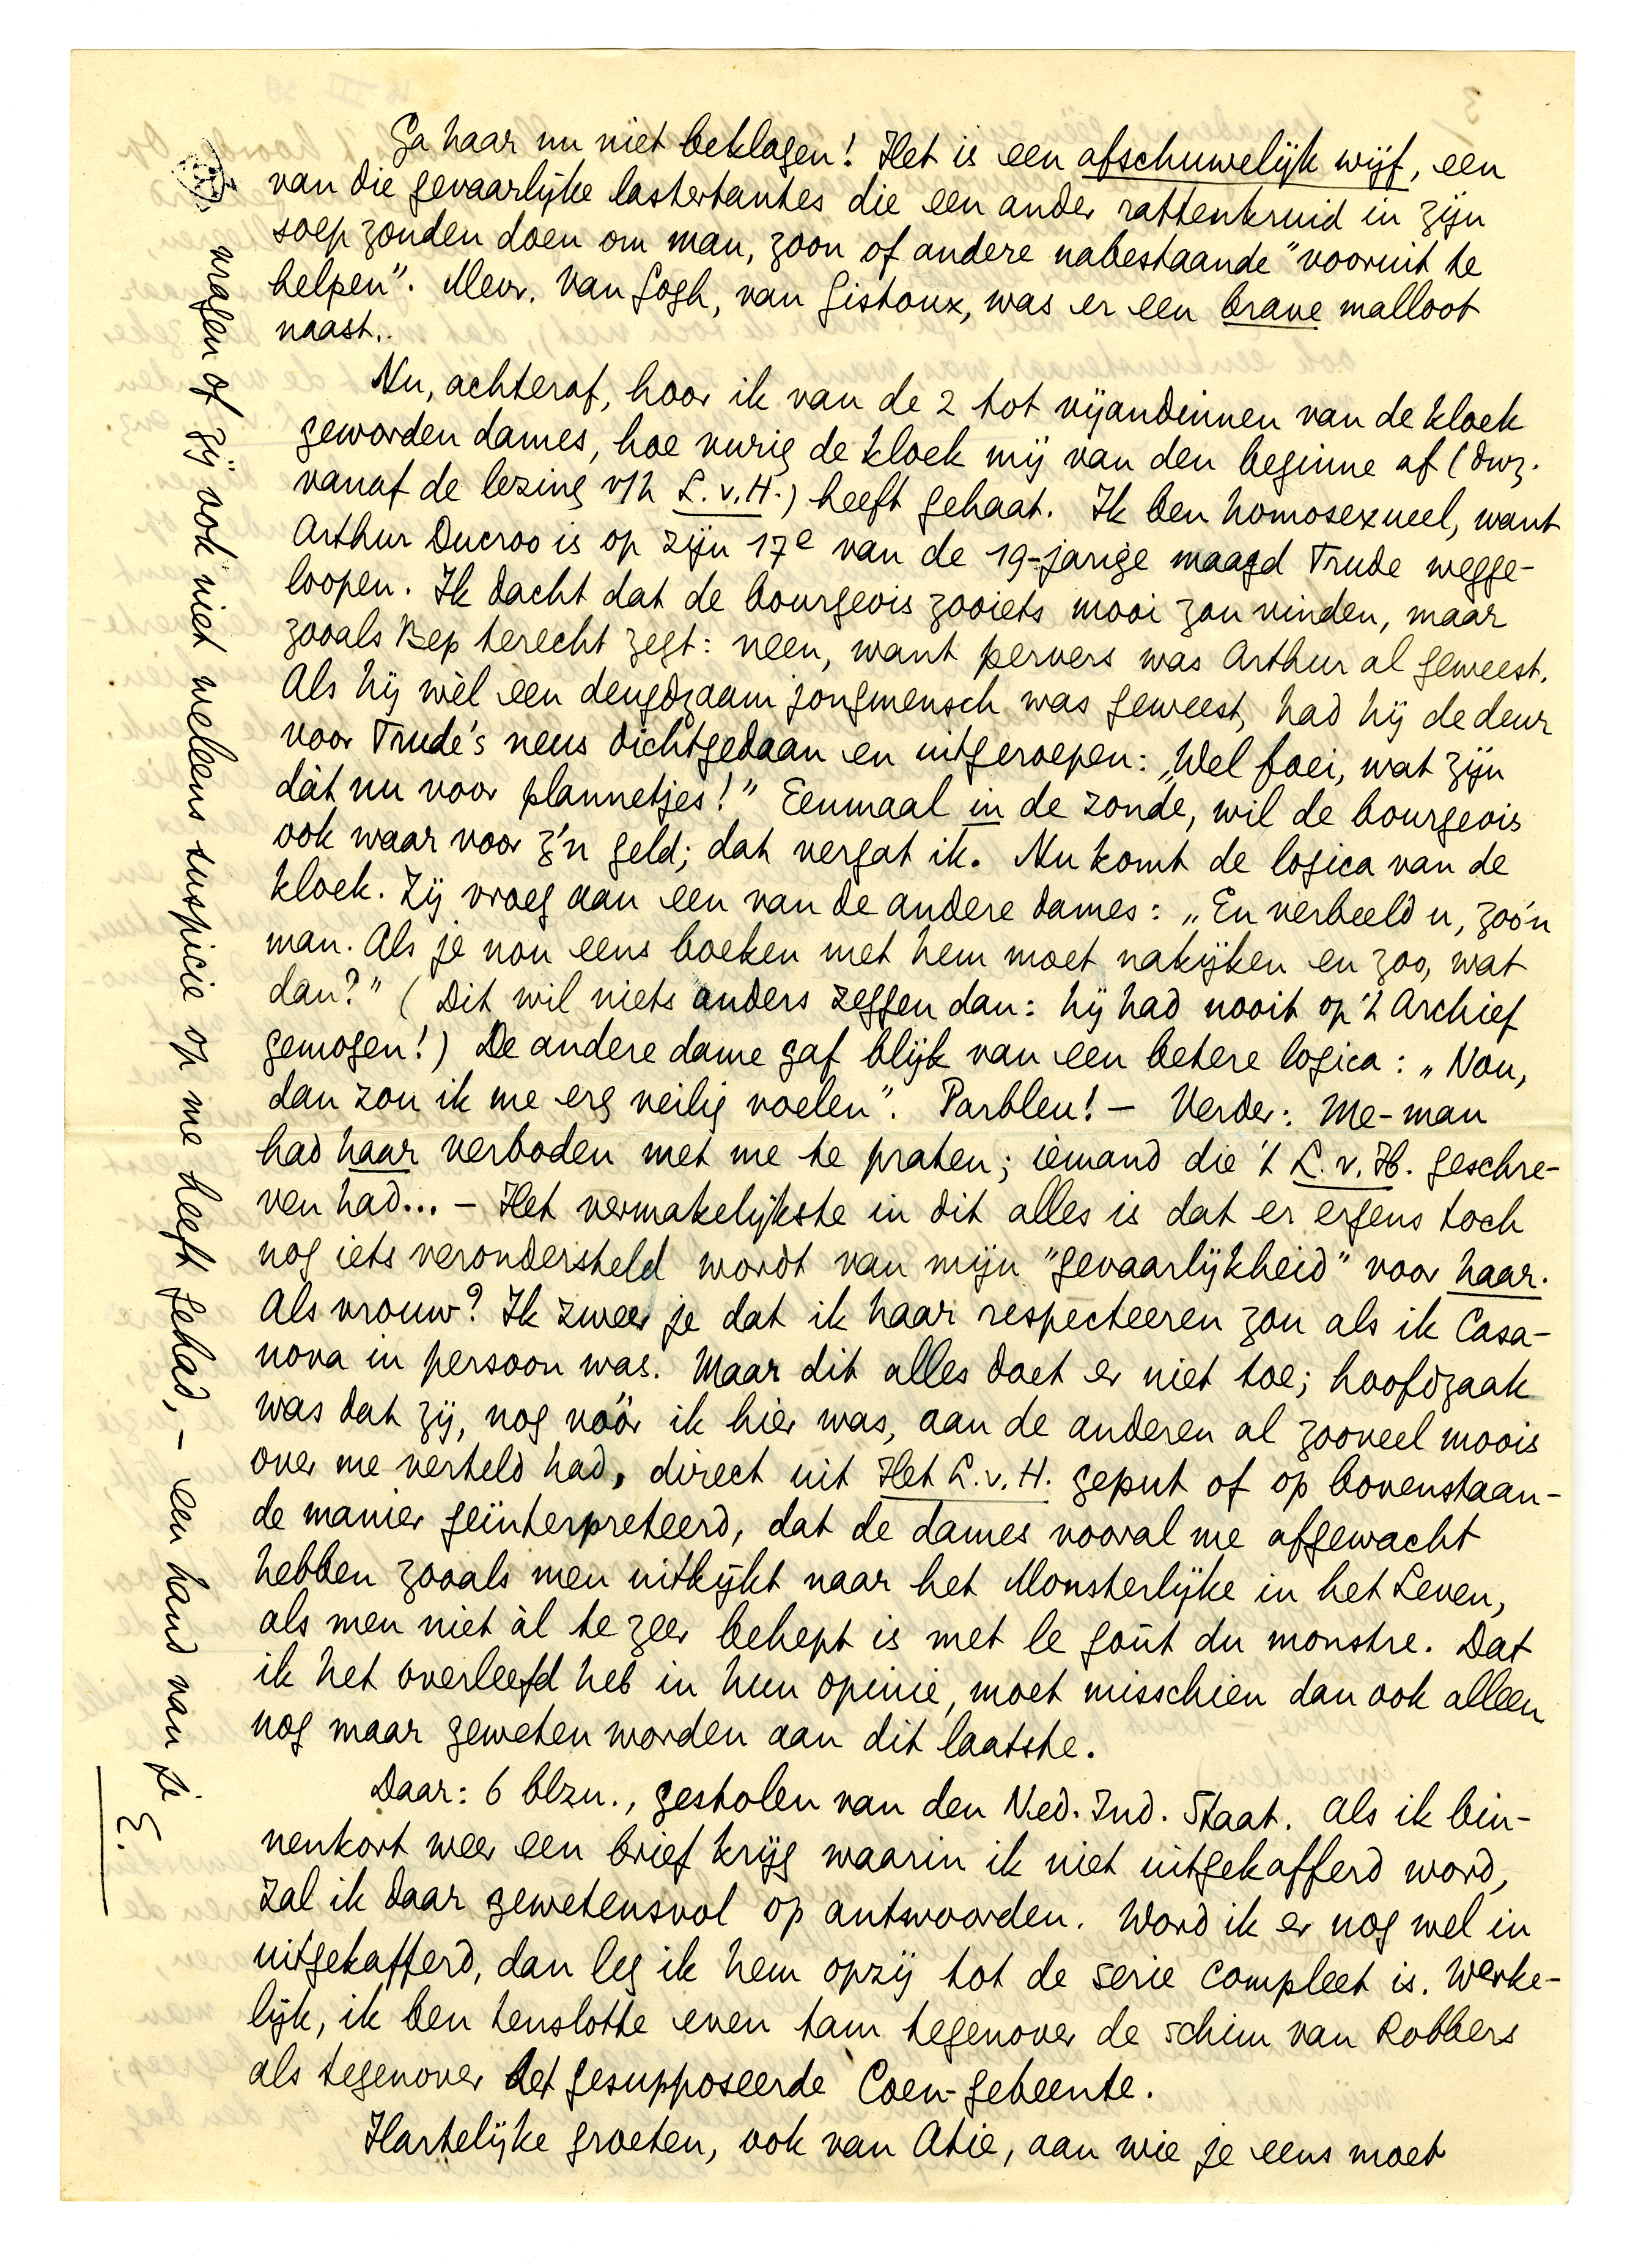 Ga haar nu niet beklagen! Het is een afschuwelijk wijf, een
van die gevaarlijke lastertantes die een ander rattenkruid in zijn
soep zouden doen om man, zoon of andere nabestaande "vooruit te
helpen". Mevr. van Gogh, van Gistoux, was er een brave malloot
naast..
Nu, achteraf, hoor ik van de 2 tot vijandinnen van de kloek
geworden dames, hoe vurig de kloek mij van den beginne af (dwz.
vanaf de lezing v/h L.v.H.) heeft gehaat. Ik ben homosexueel, want
Arthur Ducroo is op zijn 17e van de 19-jarige maagd Trude wegge-
loopen. Ik dacht dat de bourgeois zooiets mooi zou vinden, maar
zooals Bep terecht zegt: neen, want pervers was Arthur al geweest.
Als hij wèl een deugdzaam jongmensch was geweest, had hij de deur
voor Trude's neus dichtgedaan en uitgeroepen: „Wel foei, wat zijn
dàt nu voor plannetjes!" Eenmaal in de zonde, wil de bourgeois
ook waar voor z'n geld; dat vergat ik. Nu komt de logica van de
kloek. Zij vroeg aan een van de andere dames: „En verbeeld u, zoo'n
man. Als je nou eens boeken met hem moet nakijken en zoo, wat
dan?" (Dit wil niets anders zeggen dan: hij had nooit op 't Archief
gemogen!) De andere dame gaf blijk van een betere logica: „Nou,
dan zou ik me erg veilig voelen". Parbleu! – Verder: Me-man
had haar verboden met me te praten; iemand die 't L.v.H. geschre-
ven had... – Het vermakelijkste in dit alles is dat er ergens toch
nog iets verondersteld wordt van mijn "gevaarlijkheid" voor haar.
Als vrouw? Ik zweer je dat ik haar respecteeren zou als ik Casa-
nova in persoon was. Maar dit alles doet er niet toe; hoofdzaak
was dat zij, nog vóór ik hier was, aan de anderen al zooveel moois
over me verteld had, direct uit Het L.v.H. geput of op bovenstaan-
de manier geïnterpreteerd, dat de dames vooral me afgewacht
hebben zooals men uitkijkt naar het Monsterlijke in het Leven,
als men niet àl te zeer behept is met le goût du monstre. Dat
ik het overleefd heb in hun opinie, moet misschien dan ook alleen
nog maar geweten worden aan dit laatste.
Daar: 6 blzn., gestolen van den Ned. Ind. Staat. Als ik bin-
nenkort weer een brief krijg waarin ik niet uitgekafferd word,
zal ik daar gewetensvol op antwoorden. Word ik er nog wel in
uitgekafferd, dan leg ik hem opzij tot de serie compleet is. Werke-
lijk, ik ben tenslotte even tam tegenover de schim van Robbers
als tegenover het gesupposeerde Coen-gebeente.
Hartelijke groeten, ook van Atie, aan wie je eens moet
vragen of zij ook niet weleens suspicie op me heeft gehad, – een hand van je
E.